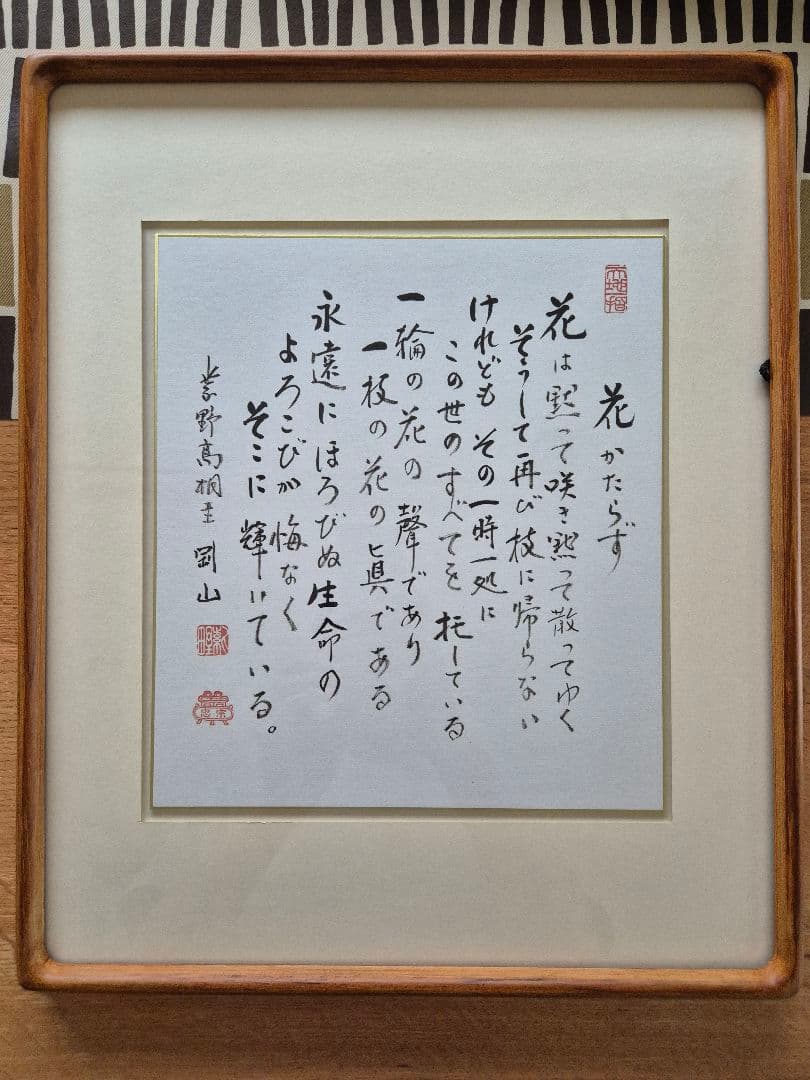 花かたらず
花は黙って咲き黙って散ってゆく
そうして再び枝に帰らない
けれども その一時一処に
この世のすべてを托している
一輪の花の聲であり
一枝の花の眞である
永遠にほろびぬ生命の
よろこびが悔なく
そこに輝いている。
紫野高桐主 剛山